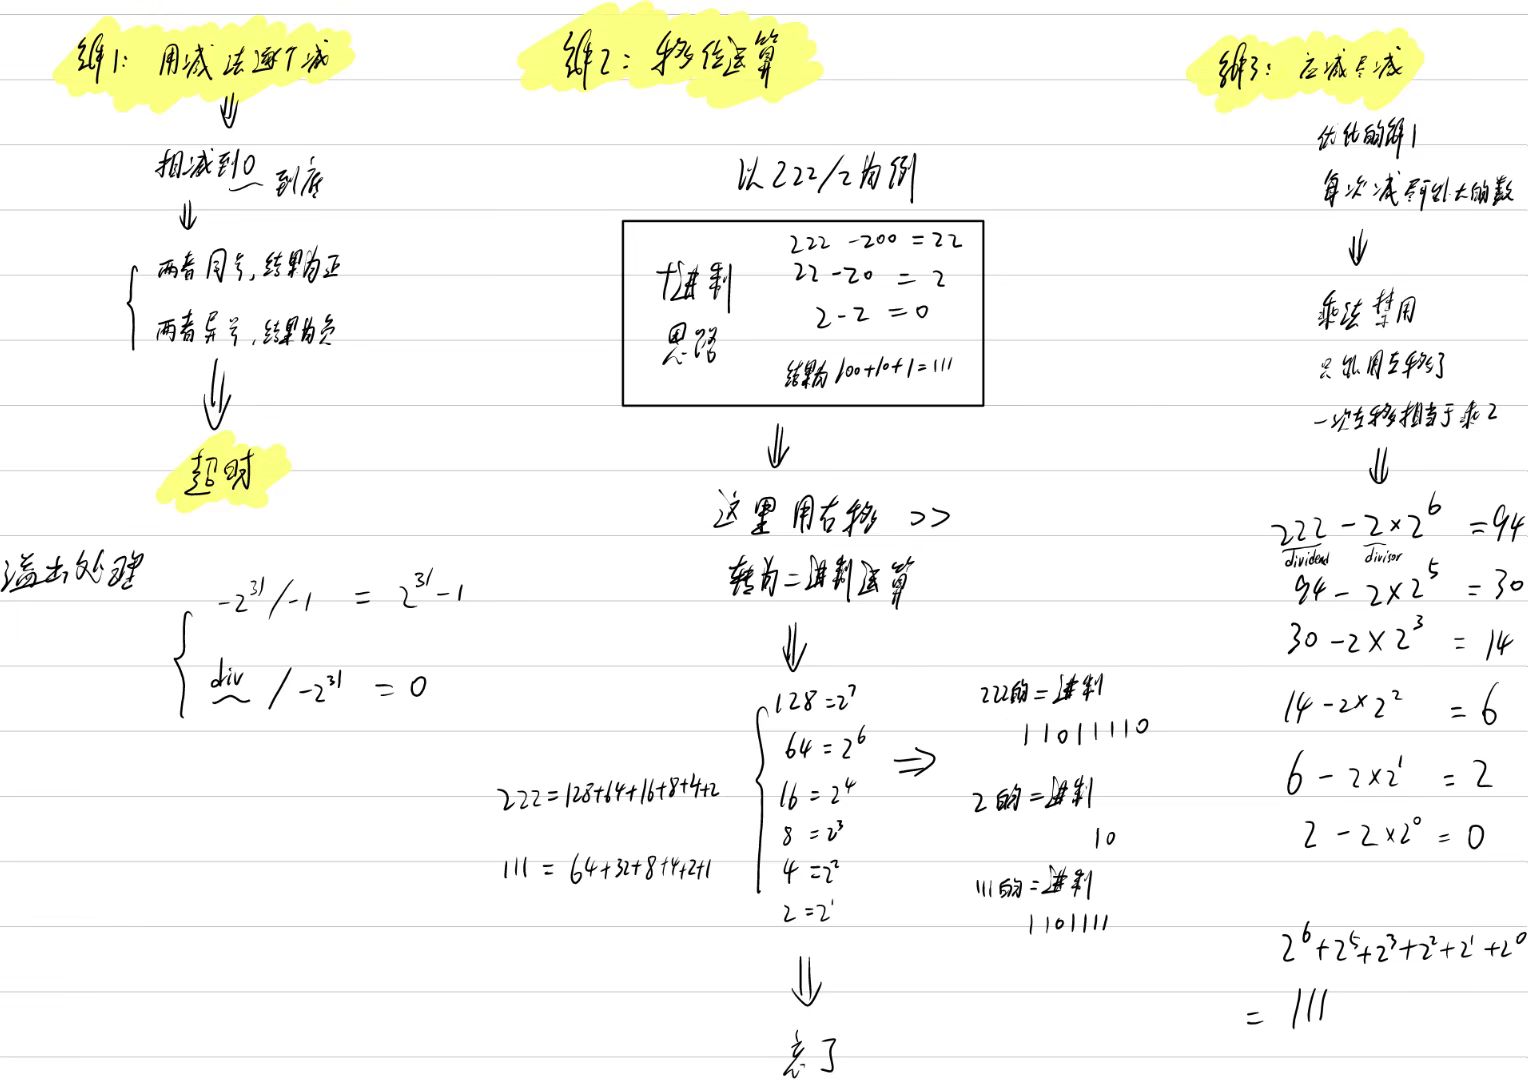 解1: 用减法逐个减
相减到0 到底
两者同号,结果为正
两者异号,结果为负
超时
溢出处理
-2^31/-1 = 2^31-1
div / -2^31 = 0
解2: 移位运算
以222/2为例
十进制
思路
222 - 200 = 22
22 - 20 = 2
2 - 2 = 0
结果为100+10+1=111
这里用右移 >>
转为二进制运算
222=128+64+16+8+4+2
111 = 64+32+8+4+2+1
128=2^7
64=2^6
16=2^4
8=2^3
4=2^2
2=2^1
222的二进制
11011110
2的二进制
10
111的二进制
1101111
忘了
解3: 应减尽减
优化的解1
每次减尽可能大的数
乘法禁用
只能用左移了
一次左移相当于乘2
222 - 2×2^6 = 94
dividend divisor
94 - 2×2^5 = 30
30 - 2×2^3 = 14
14 - 2×2^2 = 6
6 - 2×2^1 = 2
2 - 2×2^0 = 0
2^6+2^5+2^3+2^2+2^1+2^0
= 111